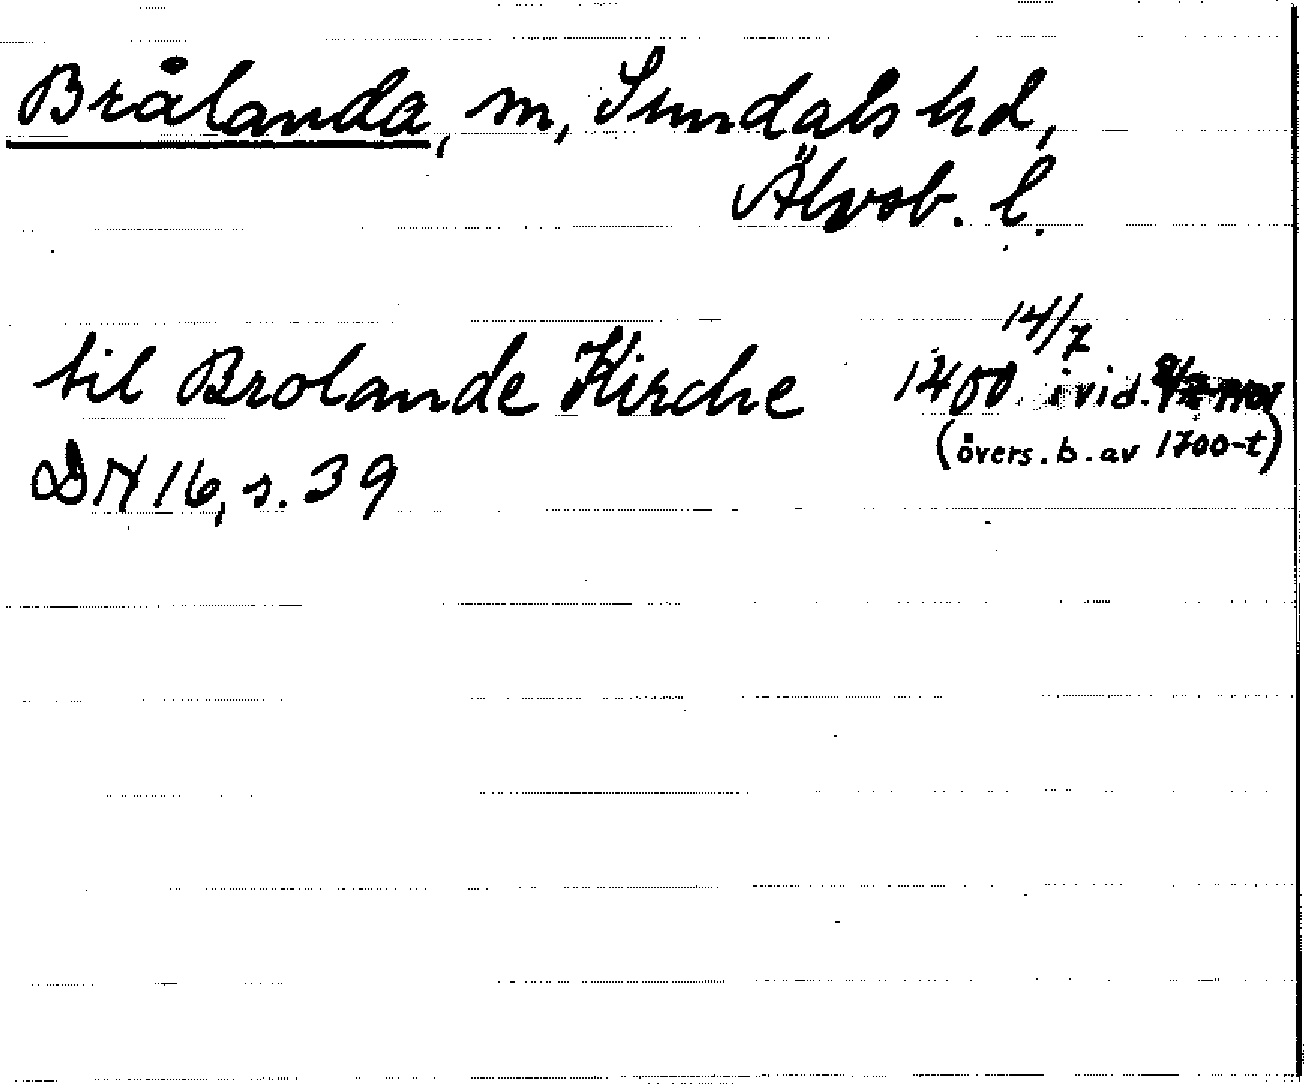 Brålanda, sn, Sundals hd,
Älvsb. l.
til Brolande Kirche 1400 14/7 i vid.
(övers. b. av 1700-t)
DN 16, s. 39